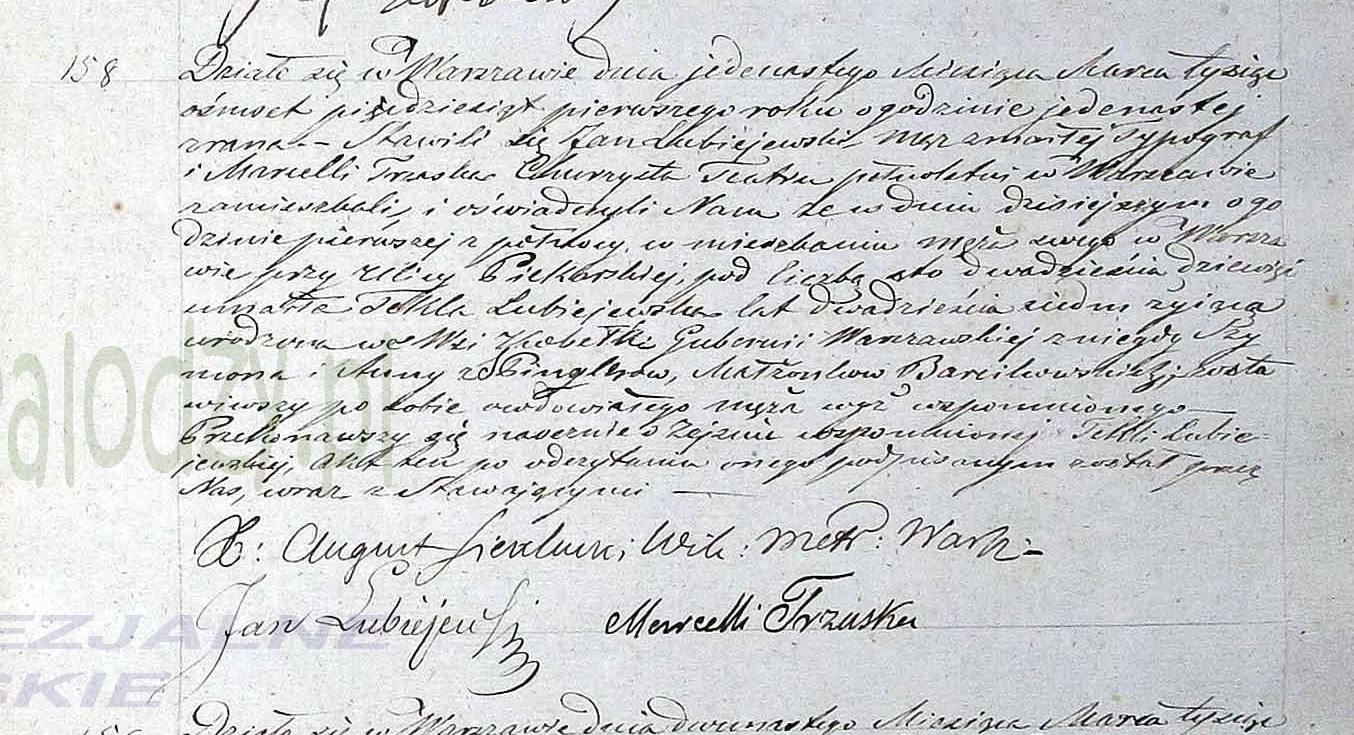 158
Działo się w Warszawie dnia jedenastego Miesiąca Marca tysiąc
ośmset pięćdziesiąt pierwszego roku o godzinie jedenastej
zrana – Stawili się Jan Lubiejewski mąż zmarłej Typograf
i Marcelli Trzaska Churzysta Teatru pełnoletni w Warszawie
zamieszkali, i oświadczyli Nam że w dniu dzisiejszym o go
dzinie pierwszej z północy, w mieszkaniu męża swego w Warsza
wie przy ulicy Piekarskiej, pod liczbą sto dwadzieścia dziewięć
umarła Tekla Lubiejewska lat dwadzieścia siedm żyjąca
urodzona we Wsi Kobełki Gubernii Warszawskiej z niegdy Szy
mona i Anny z Małżonków zosta
wiwszy po sobie owdowiałego męża wyż wspomnionego –
Przekonawszy się naocznie o zejściu wspomnionej Tekli Lubie=
jewskiej, Akt ten po odczytaniu onego podpisanym został przez
Nas, wraz z Stawającymi —
X: August Wik: Metr: Warsz: –
Jan Lubiejewski Marcelli Trzaska
Działo się w Warszawie dnia dwunastego Miesiąca Marca tysiąc
alodzy.pl
EZJALNE
SKIE